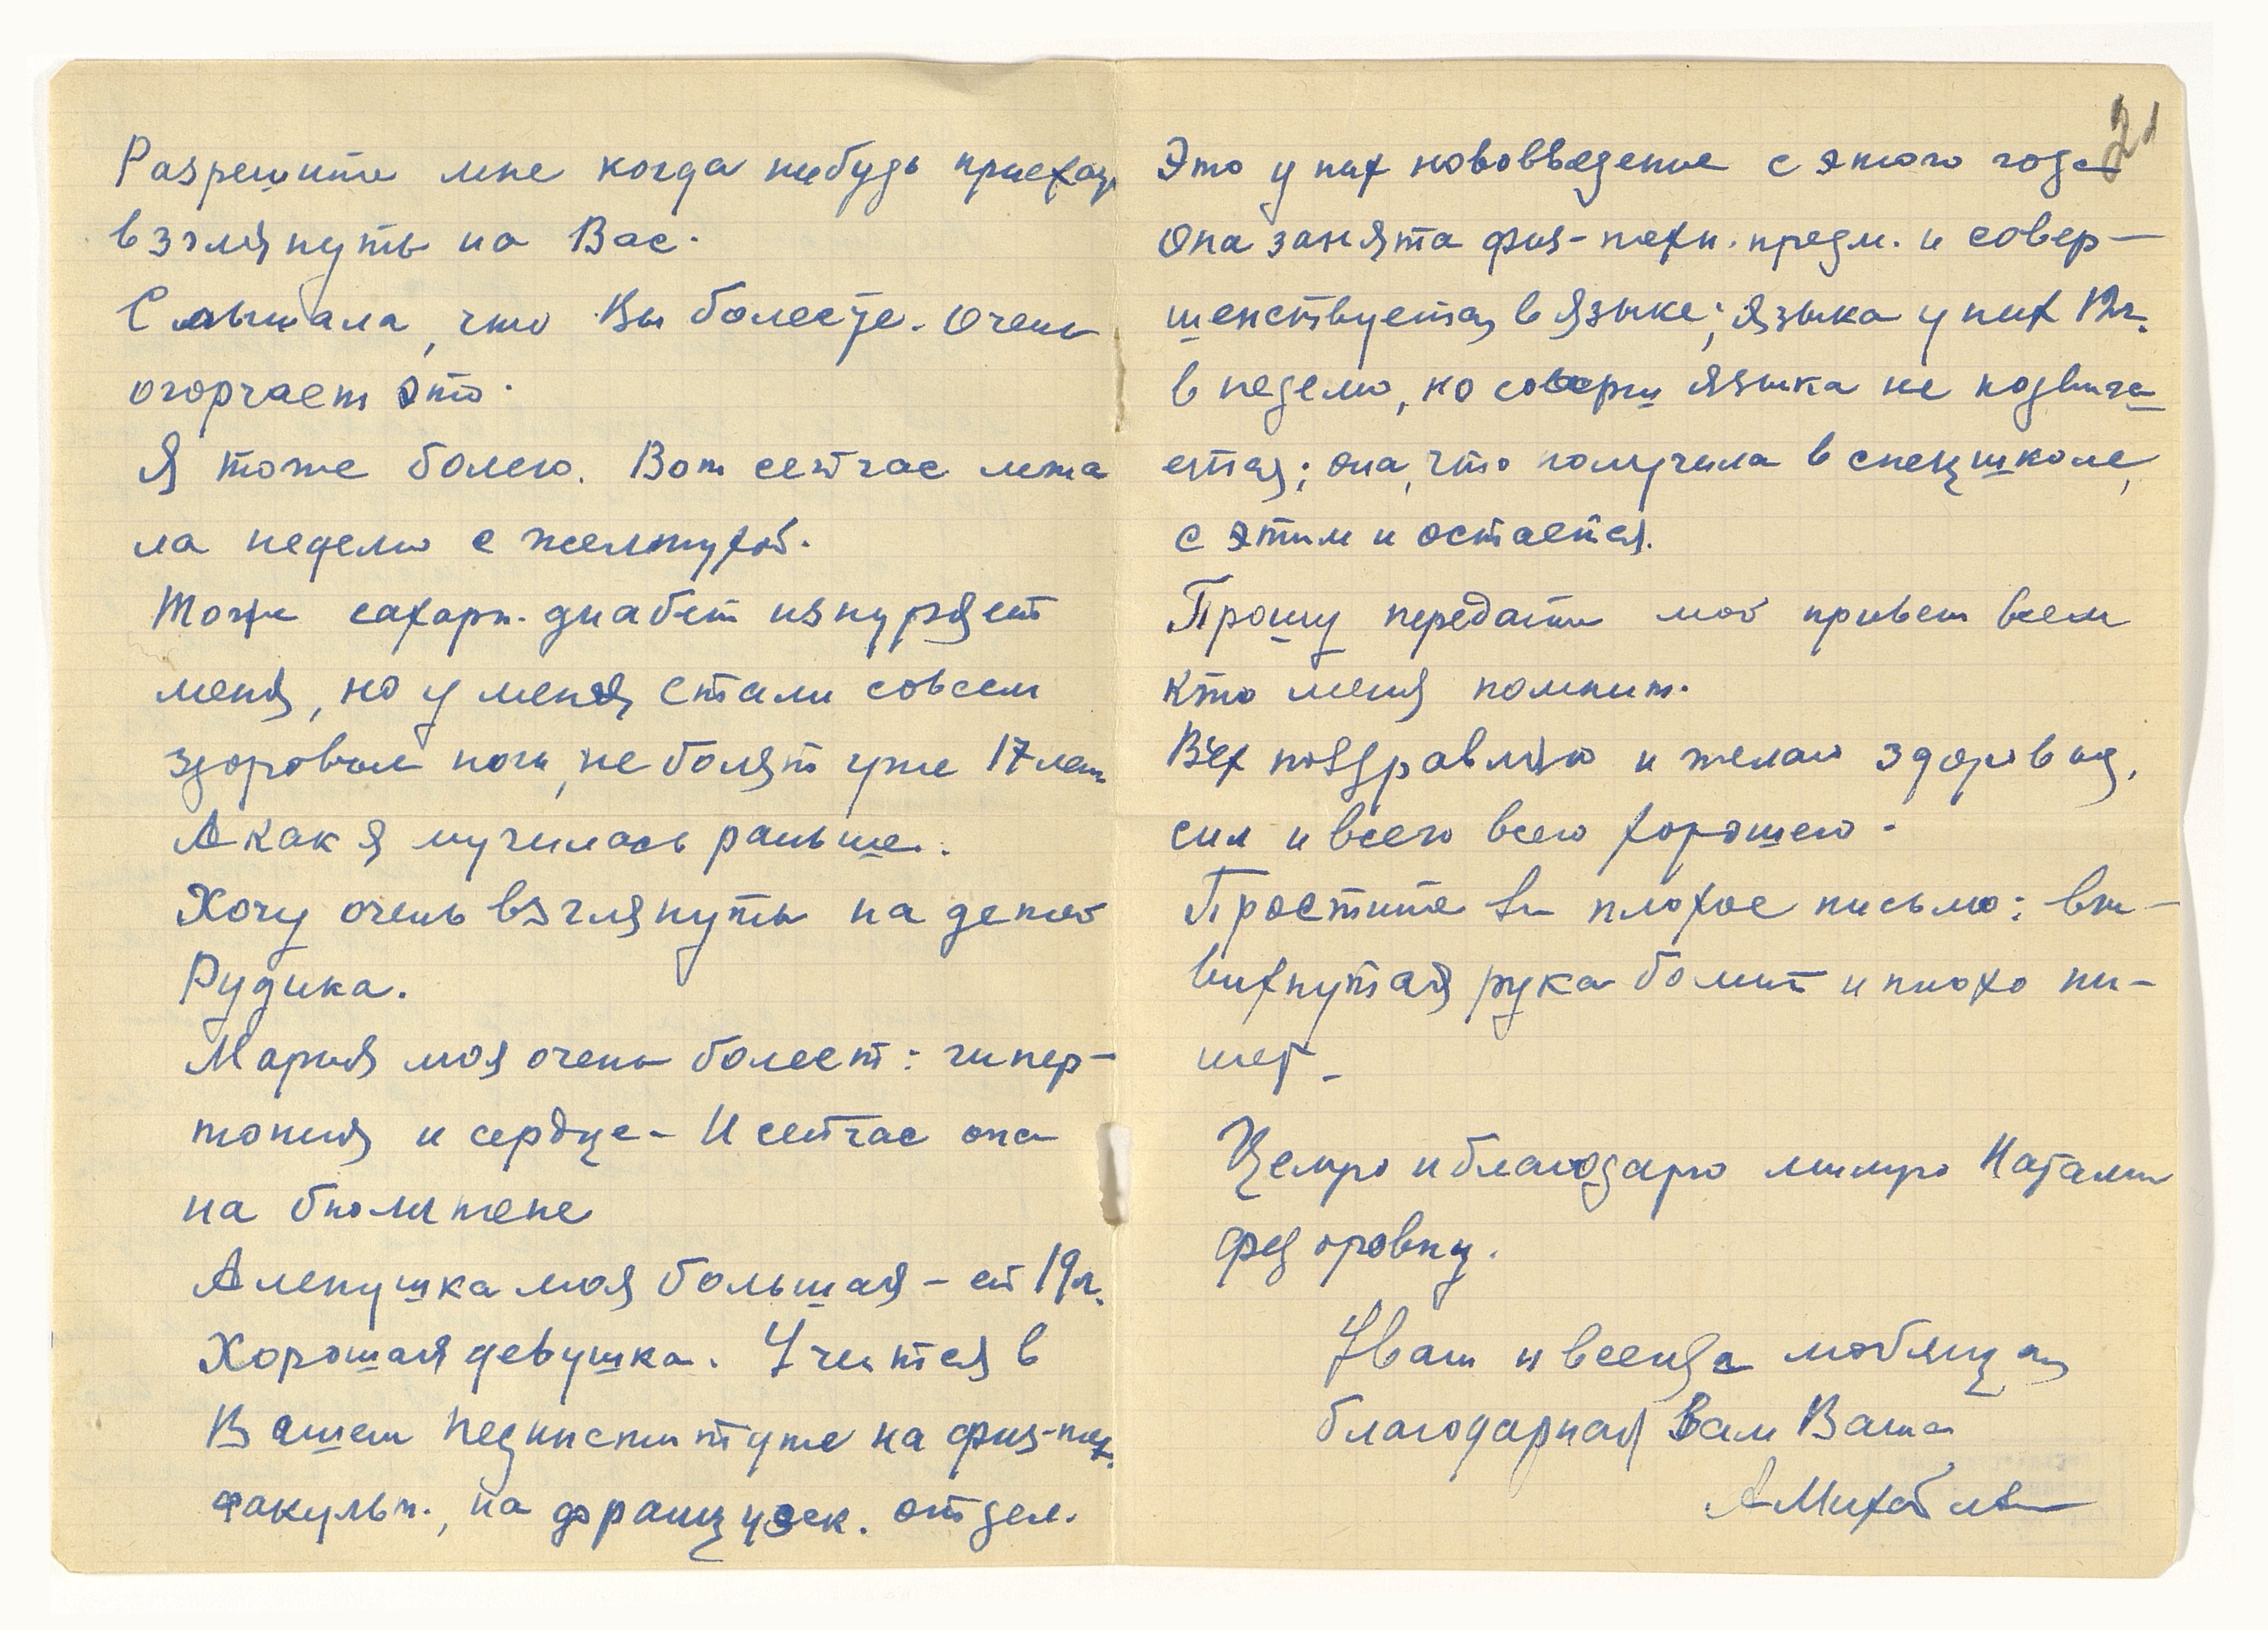 Разрешите мне когда нибудь приехать
взглянуть на Вас.
Слышала, что Вы болеете. Очень
огорчает это.
Я тоже болею. Вот сейчас лежа
ла неделю с желтухой.
Тоже сахарн. диабет изнуряет
меня, но у меня стали совсем
здоровые ноги, не болят уже 17 лет
А как я мучилась раньше.
Хочу очень взглянуть на детей
Рудика.
Мария моя очень болеет: гипер-
тония и сердце – И сейчас она
на бюлитене
Аленушка моя большая – ей 19 л.
Хорошая девушка. Учится в
Вашем пединституте на физ-тех.
факульт., на французск. отдел.
21
Это у них нововведение с этого года
Она занята физ-техн. предм. и совер-
шенствуется в языке; языка у них 12 ч.
в неделю, но соверш языка не подвига
ется; она, что получила в спецшколе,
с этим и остается.
Прошу передать мой привет всем
кто меня помнит.
Всех поздравляю и желаю здоровия,
сил и всего всего хорошего.
Простите за плохое письмо: вы-
вихнутая рука болит и плохо пи-
шет.
Целую и благодарю милую Наталию
Федоровну.
Уваж и всегда любящая
благодарная Вам Ваша
А